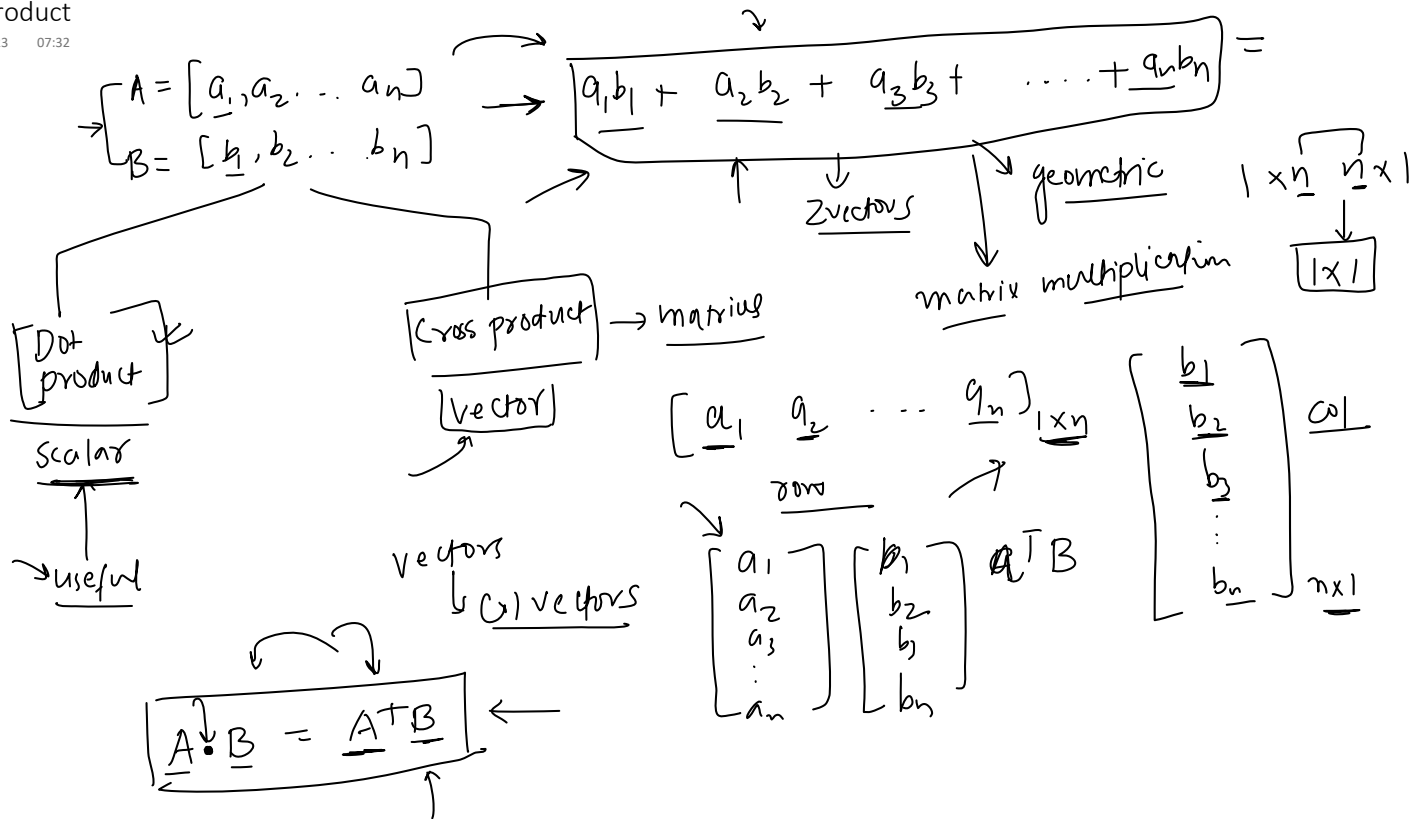 roduct
3 07:32
A = [a₁, a₂ ... aₙ]
B = [b₁, b₂ ... bₙ]
a₁b₁ + a₂b₂ + a₃b₃ + ..... + aₙbₙ =
2vectors
geometric
matrix multiplication
1 × n n × 1
1×1
Dot
product
scalar
useful
Cross product → matrius
vector
[a₁ a₂ ... aₙ]₁×ₙ
row
b₁
b₂
b₃
⋮
bₙ
col
n×1
vectors
vectors
a₁
a₂
a₃
⋮
aₙ
b₁
b₂
b₃
bₙ
aᵀB
A • B = AᵀB